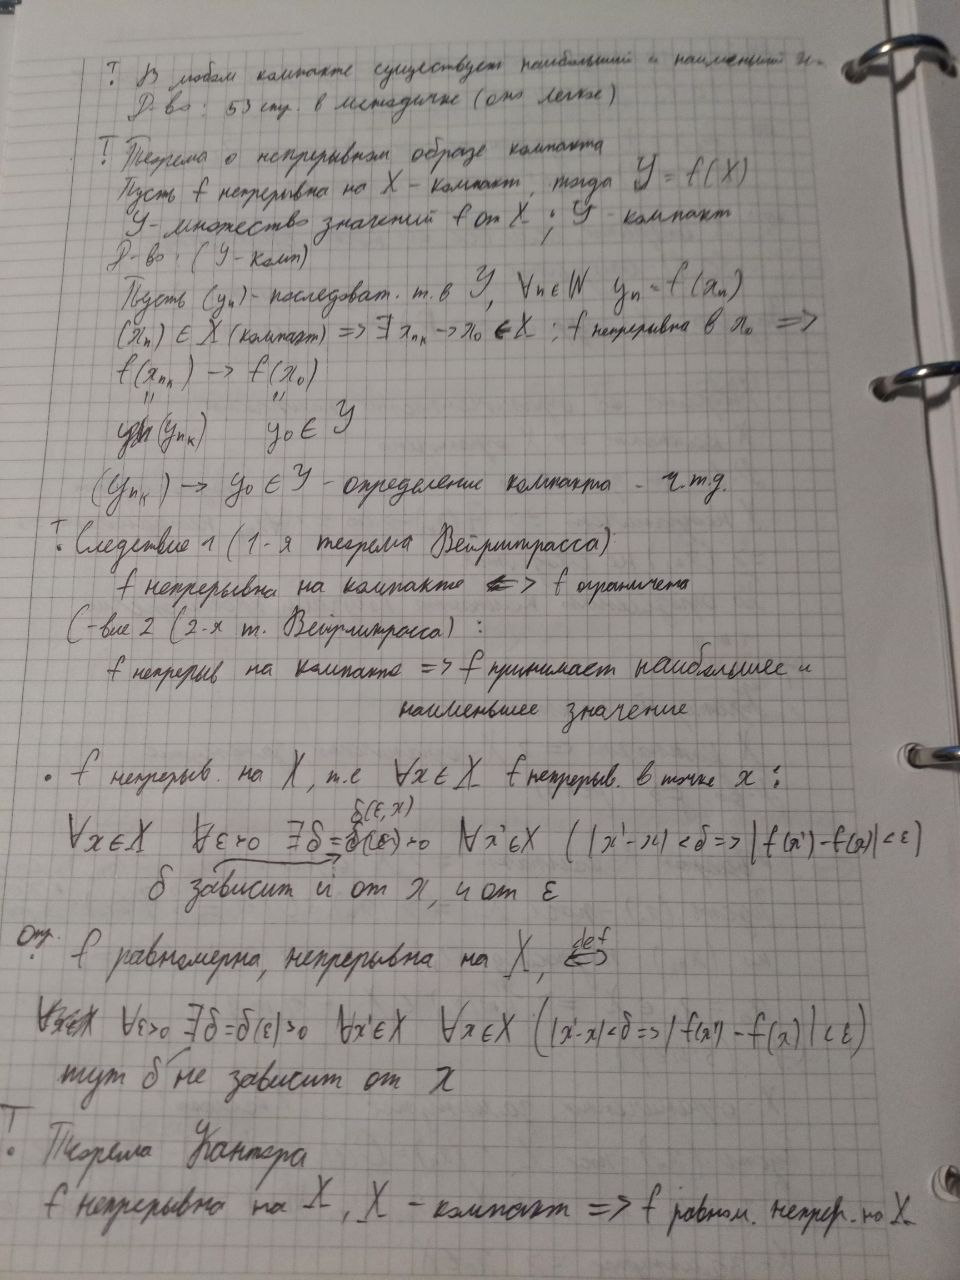 Т. В любом компакте существует наибольший и наименьший эл.
Д-во: 53 стр. в методичке (оно легкое)
Т. Теорема о непрерывном образе компакта
Пусть f непрерывна на X - компакт, тогда Y = f(X)
Y - множество значений f от X ; Y - компакт
Д-во: (Y - комп)
Пусть (yₙ) - последоват. т. в Y, ∀n∈ℕ yₙ = f(xₙ)
(xₙ) ∈ X (компакт) => ∃ xₙₖ → x₀ ∈ X ; f непрерывна в x₀ =>
f(xₙₖ) → f(x₀)
" "
(yₙₖ) y₀ ∈ Y
(yₙₖ) → y₀ ∈ Y - определение компакта - ч.т.д.
Т. Следствие 1 (1-я теорема Вейрштрасса)
f непрерывна на компакте => f ограничена
С-вие 2 (2-я т. Вейрштрасса) :
f непрерыв на компакте => f принимает наибольшее и
наименьшее значение
• f непрерыв. на X, т.е ∀x∈X f непрерыв. в точке x :
δ(ε,x)
∀x∈X ∀ε>0 ∃δ=δ(ε)>0 ∀x'∈X (|x'-x|<δ=>|f(x')-f(x)|<ε)
δ зависит и от x, и от ε
Опр. f равномерна, непрерывна на X, def <=>
∀x∈X ∀ε>0 ∃δ=δ(ε)>0 ∀x'∈X ∀x∈X (|x'-x|<δ=>|f(x')-f(x)|<ε)
тут δ не зависит от x
Т. Теорема Кантора
f непрерывна на X, X - компакт => f равном. непрер. на X